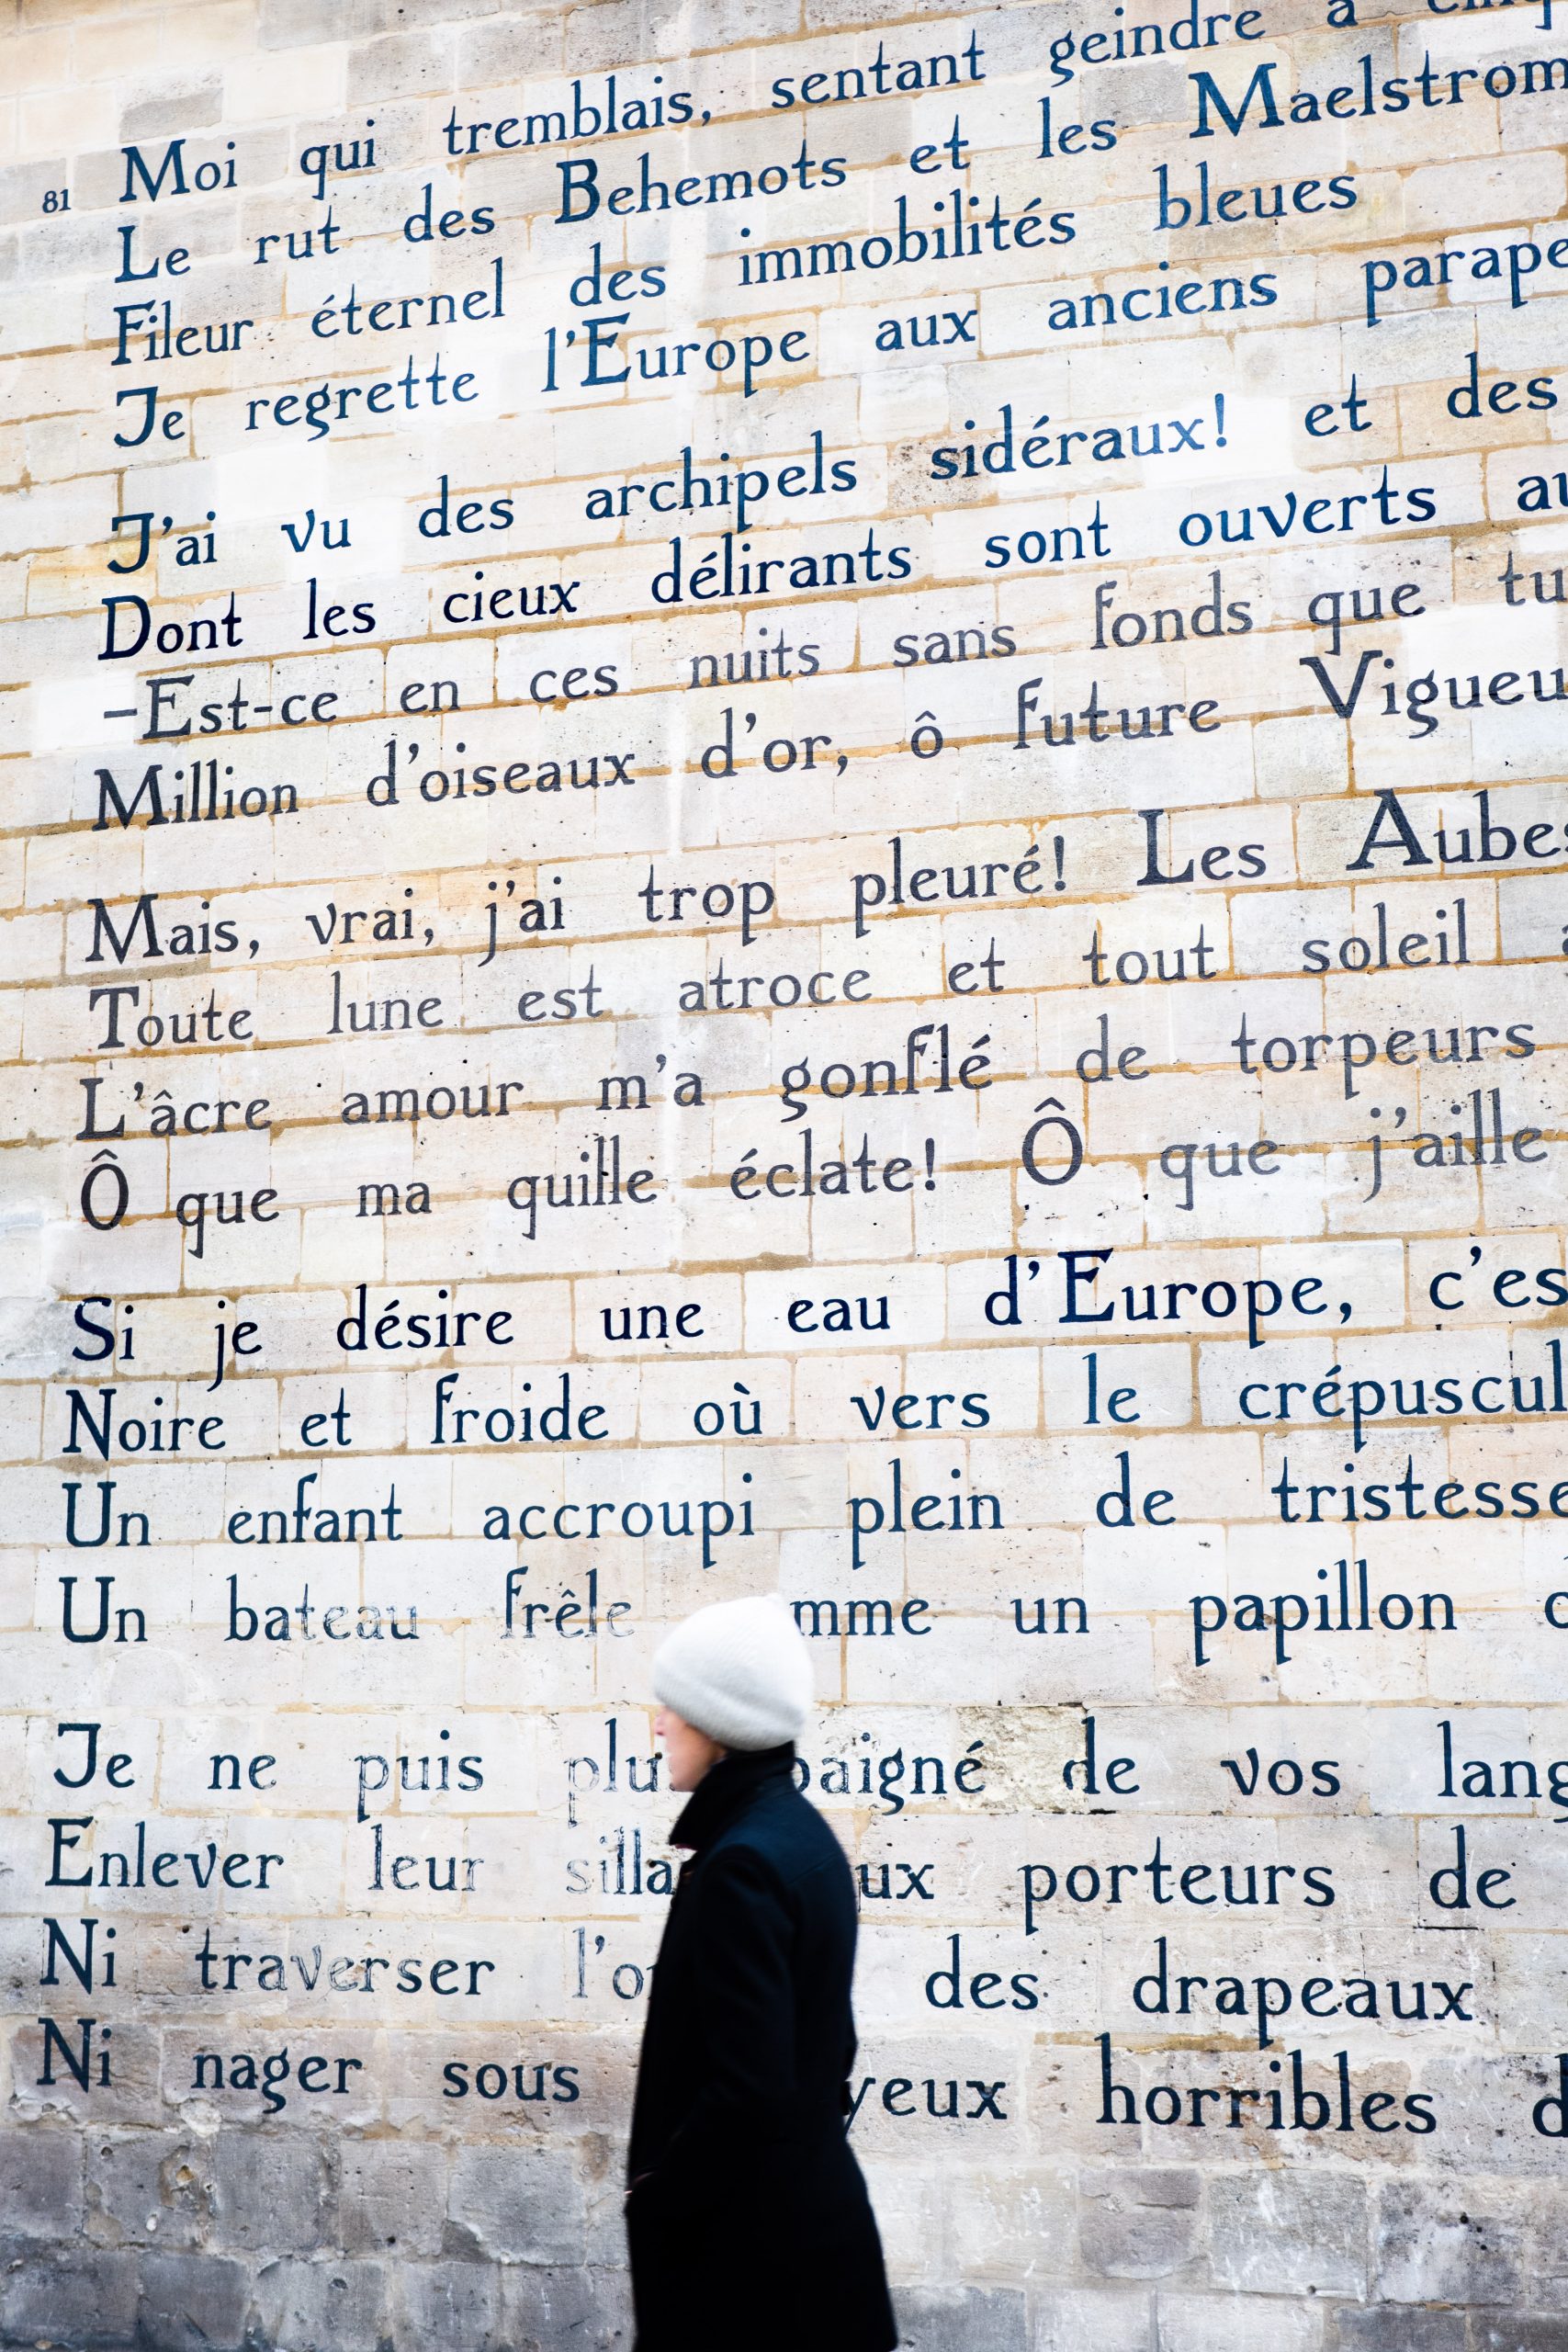 81 Moi qui tremblais, sentant geindre à
Le rut des Behemots et les Maelstrom
Fileur éternel des immobilités bleues
Je regrette l'Europe aux anciens parape
J'ai vu des archipels sidéraux! et des
Dont les cieux délirants sont ouverts au
–Est-ce en ces nuits sans fonds que tu
Million d'oiseaux d'or, ô future Vigueu
Mais, vrai, j'ai trop pleuré! Les Aubes
Toute lune est atroce et tout soleil a
L'âcre amour m'a gonflé de torpeurs
Ô que ma quille éclate! Ô que j'aille
Si je désire une eau d'Europe, c'es
Noire et froide où vers le crépuscul
Un enfant accroupi plein de tristesse
Un bateau frêle mme un papillon d
Je ne puis plu baigné de vos lang
Enlever leur silla ux porteurs de
Ni traverser l'o des drapeaux
Ni nager sous yeux horribles d